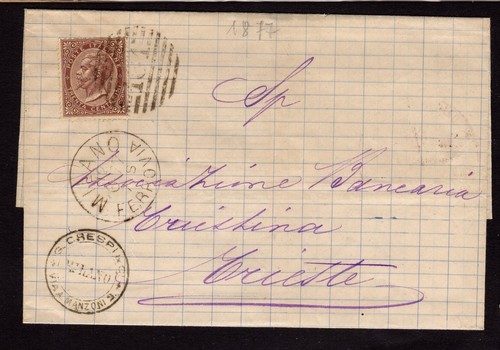 1877
Sp
Associazione Bancaria
Triestina
Trieste
MILANO
FERROVIA
G. CRESPI
MILANO
VIA MANZONI